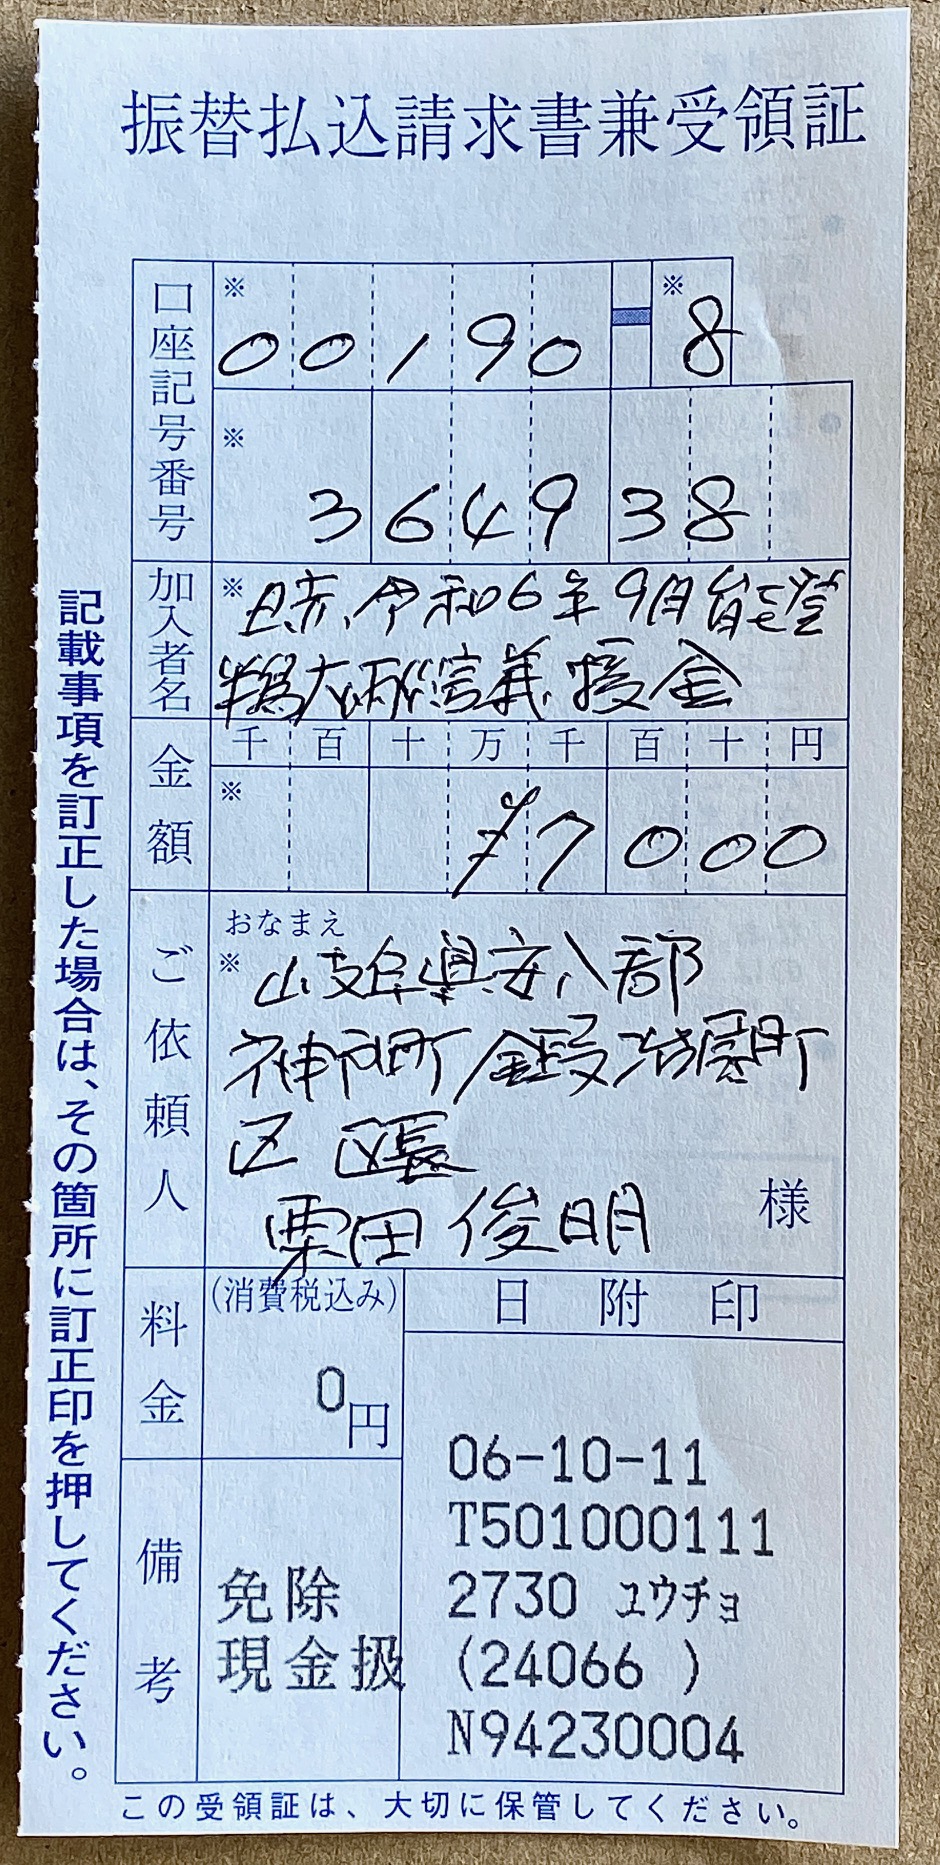 振替払込請求書兼受領証
口座記号番号
※ 00190-※8
※ 364938
加入者名
※ 日赤令和6年9月能登
半島大雨災害義援金
金額
千 百 十 万 千 百 十 円
※ ¥7000
ご依頼人
おなまえ
※ 岐阜県安八郡
神戸町
区 区長
栗田 俊明
様
料金
(消費税込み)
0円
日附印
06-10-11
T501000111
2730 ユウチョ
(24066 )
N94230004
備考
免除
現金扱
記載事項を訂正した場合は、その箇所に訂正印を押してください。
この受領証は、大切に保管してください。